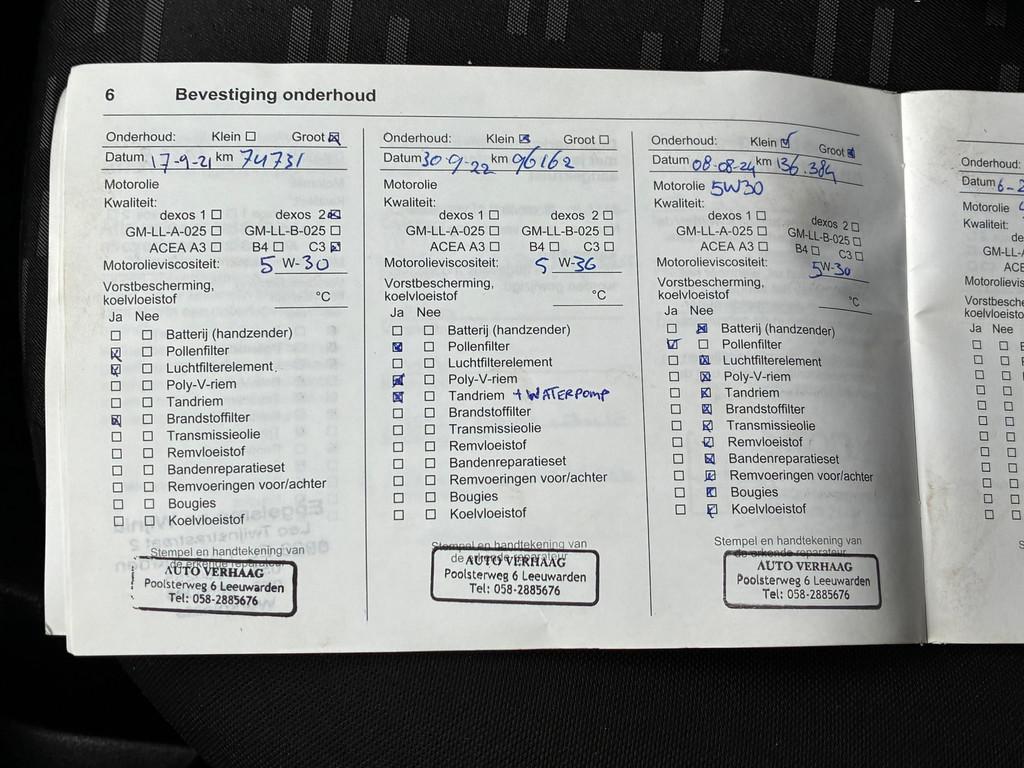 6 Bevestiging onderhoud
Onderhoud: Klein ☐ Groot ☒
Datum 17-9-21 km 74731
Motorolie
Kwaliteit:
dexos 1 ☐ dexos 2 ☒
GM-LL-A-025 ☐ GM-LL-B-025 ☐
ACEA A3 ☐ B4 ☐ C3 ☒
Motorolieviscositeit: 5 W-30
Vorstbescherming,
koelvloeistof °C
Ja Nee
☐ ☐ Batterij (handzender)
☒ ☐ Pollenfilter
☒ ☐ Luchtfilterelement
☐ ☐ Poly-V-riem
☐ ☐ Tandriem
☒ ☐ Brandstoffilter
☐ ☐ Transmissieolie
☐ ☐ Remvloeistof
☐ ☐ Bandenreparatieset
☐ ☐ Remvoeringen voor/achter
☐ ☐ Bougies
☐ ☐ Koelvloeistof
Stempel en handtekening van
de erkende reparateur
AUTO VERHAAG
Poolsterweg 6 Leeuwarden
Tel: 058-2885676
Onderhoud: Klein ☒ Groot ☐
Datum 30-9-22 km 96162
Motorolie
Kwaliteit:
dexos 1 ☐ dexos 2 ☐
GM-LL-A-025 ☐ GM-LL-B-025 ☐
ACEA A3 ☐ B4 ☐ C3 ☐
Motorolieviscositeit: 5 W-36
Vorstbescherming,
koelvloeistof °C
Ja Nee
☐ ☐ Batterij (handzender)
☒ ☐ Pollenfilter
☐ ☐ Luchtfilterelement
☒ ☐ Poly-V-riem
☒ ☐ Tandriem + WATERPOMP
☐ ☐ Brandstoffilter
☐ ☐ Transmissieolie
☐ ☐ Remvloeistof
☐ ☐ Bandenreparatieset
☐ ☐ Remvoeringen voor/achter
☐ ☐ Bougies
☐ ☐ Koelvloeistof
Stempel en handtekening van
de erkende reparateur
AUTO VERHAAG
Poolsterweg 6 Leeuwarden
Tel: 058-2885676
Onderhoud: Klein ☑ Groot ☒
Datum 08-08-24 km 136.384
Motorolie 5W30
Kwaliteit:
dexos 1 ☐ dexos 2 ☐
GM-LL-A-025 ☐ GM-LL-B-025 ☐
ACEA A3 ☐ B4 ☐ C3 ☐
Motorolieviscositeit: 5W-30
Vorstbescherming,
koelvloeistof °C
Ja Nee
☐ ☒ Batterij (handzender)
☑ ☐ Pollenfilter
☐ ☒ Luchtfilterelement
☐ ☒ Poly-V-riem
☐ ☒ Tandriem
☐ ☒ Brandstoffilter
☐ ☒ Transmissieolie
☐ ☑ Remvloeistof
☐ ☒ Bandenreparatieset
☐ ☒ Remvoeringen voor/achter
☐ ☒ Bougies
☐ ☒ Koelvloeistof
Stempel en handtekening van
de erkende reparateur
AUTO VERHAAG
Poolsterweg 6 Leeuwarden
Tel: 058-2885676
Onderhoud:
Datum 6-2
Motorolie
Kwaliteit:
de
GM-LL-
ACE
Motorolievis
Vorstbesche
koelvloeisto
Ja Nee